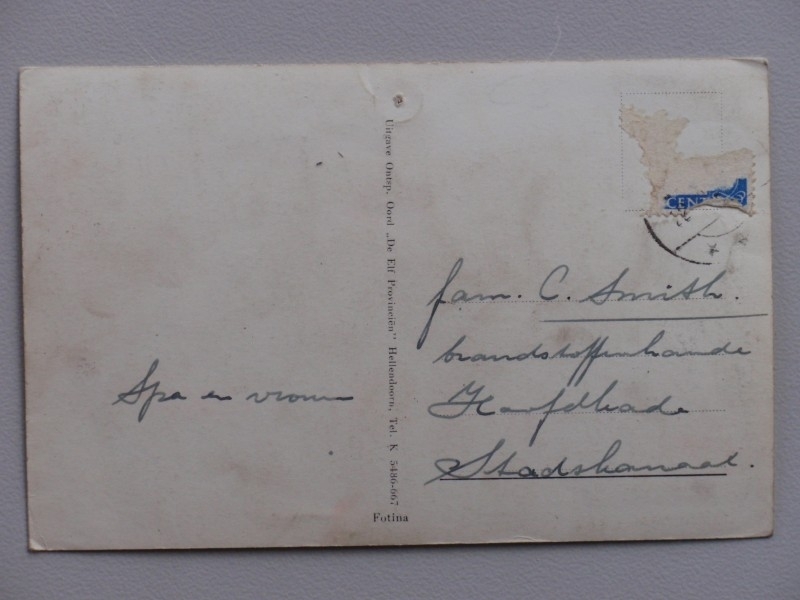 Spa en vrouw
Uitgave Ontsp. Oord „De Elf Provinciën" Hellendoorn, Tel. K 5486-667
Fotina
CENT
fam. C. Smith.
brandstoffenhande
Hoofdkade
Stadskanaal.